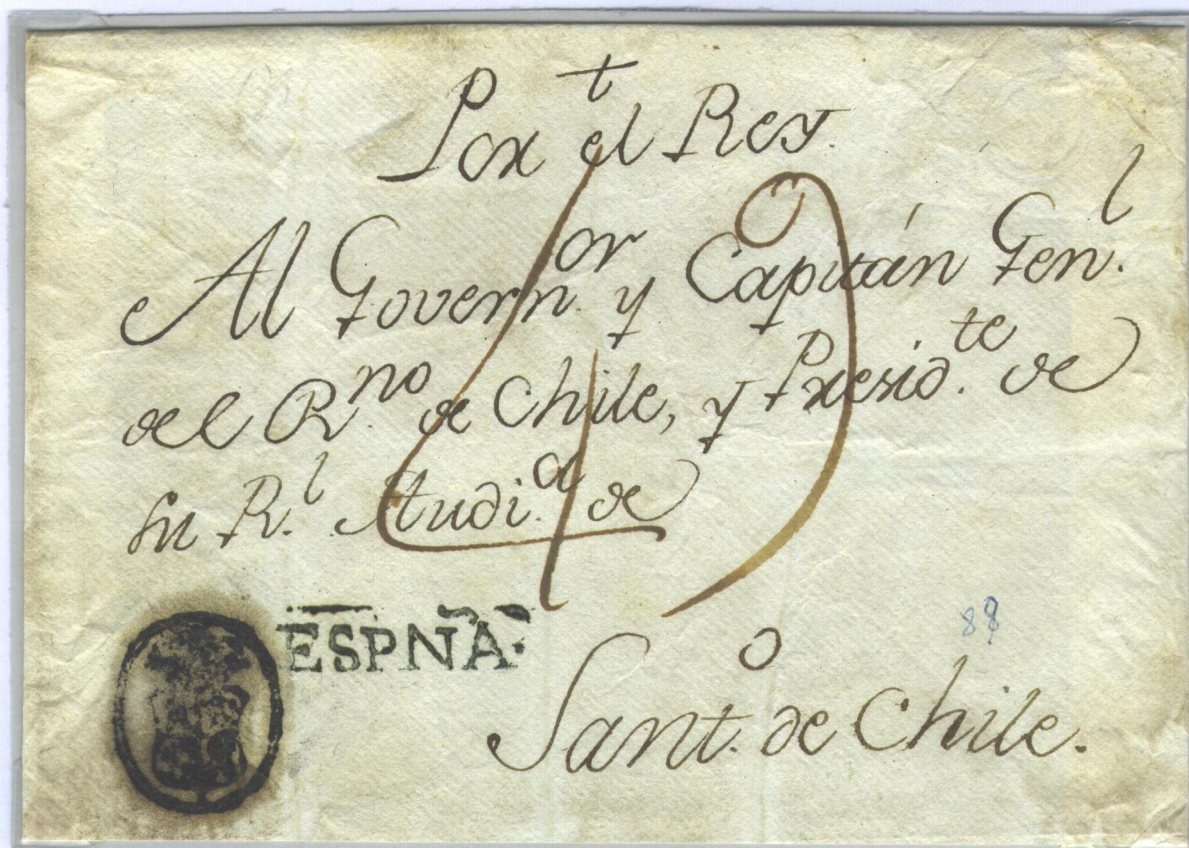 †
Por el Rey.
Al Govern.or y Capitán Gen.l
del R.no de Chile, y Presid.te de
su R.l Audi.a de
49
ESPÑA.
88
Sant.o de Chile.